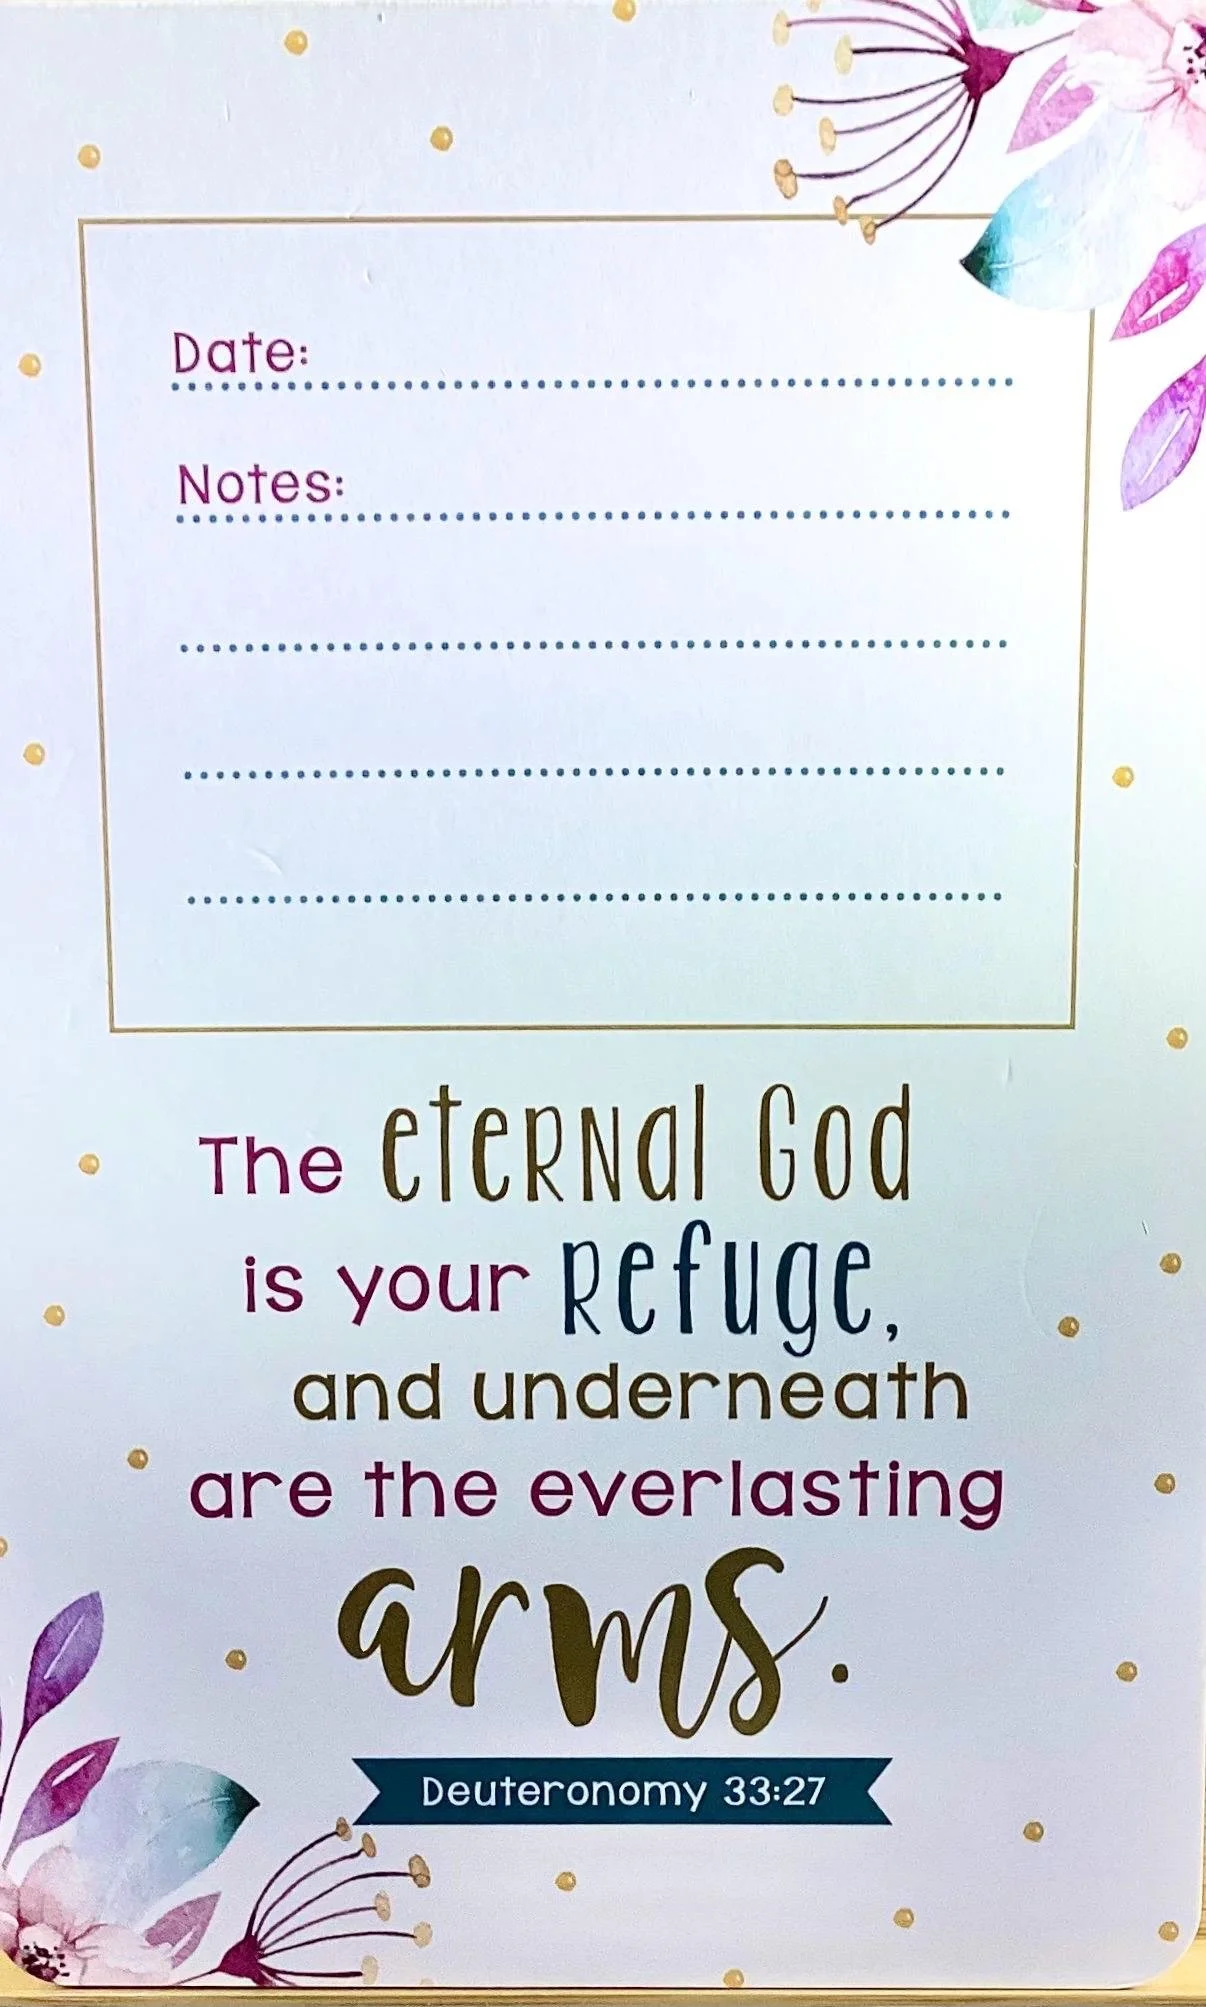 Date:
Notes:
The eternal God
is your refuge,
and underneath
are the everlasting
arms.
Deuteronomy 33:27